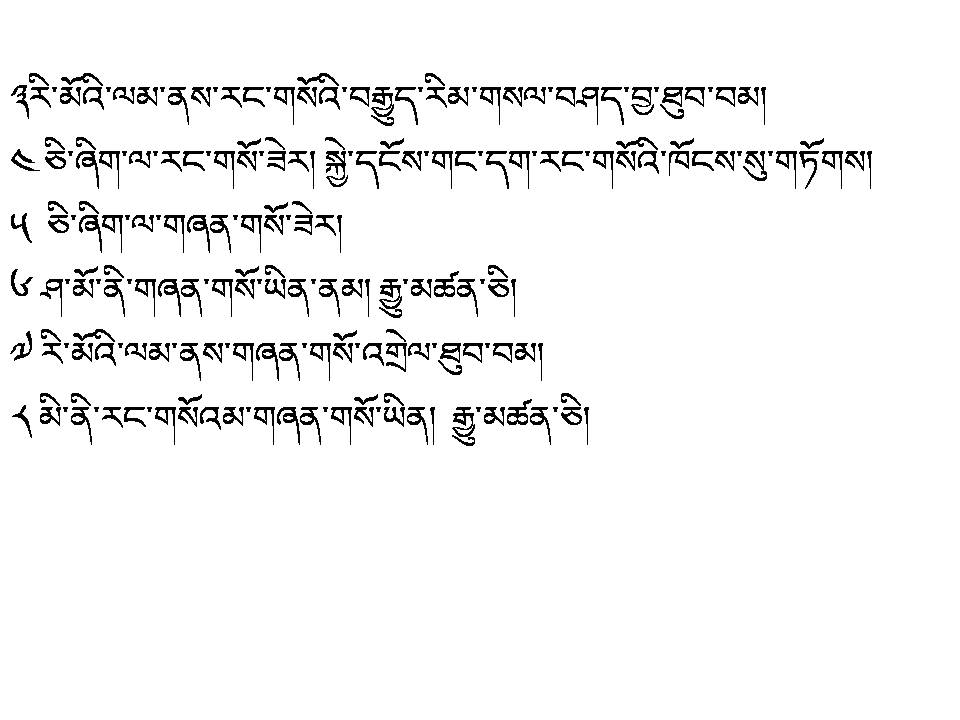 ༣རི་མོའི་ལམ་ནས་རང་གསོའི་བརྒྱུད་རིམ་གསལ་བཤད་བྱ་ཐུབ་བམ།
༤ ཅི་ཞིག་ལ་རང་གསོ་ཟེར། སྐྱེ་དངོས་གང་དག་རང་གསོའི་ཁོངས་སུ་གཏོགས།
༥ ཅི་ཞིག་ལ་གཞན་གསོ་ཟེར།
༦ ཤ་མོ་ནི་གཞན་གསོ་ཡིན་ནམ། རྒྱུ་མཚན་ཅི།
༧ རི་མོའི་ལམ་ནས་གཞན་གསོ་འགྲེལ་ཐུབ་བམ།
༨ མི་ནི་རང་གསོའམ་གཞན་གསོ་ཡིན། རྒྱུ་མཚན་ཅི།